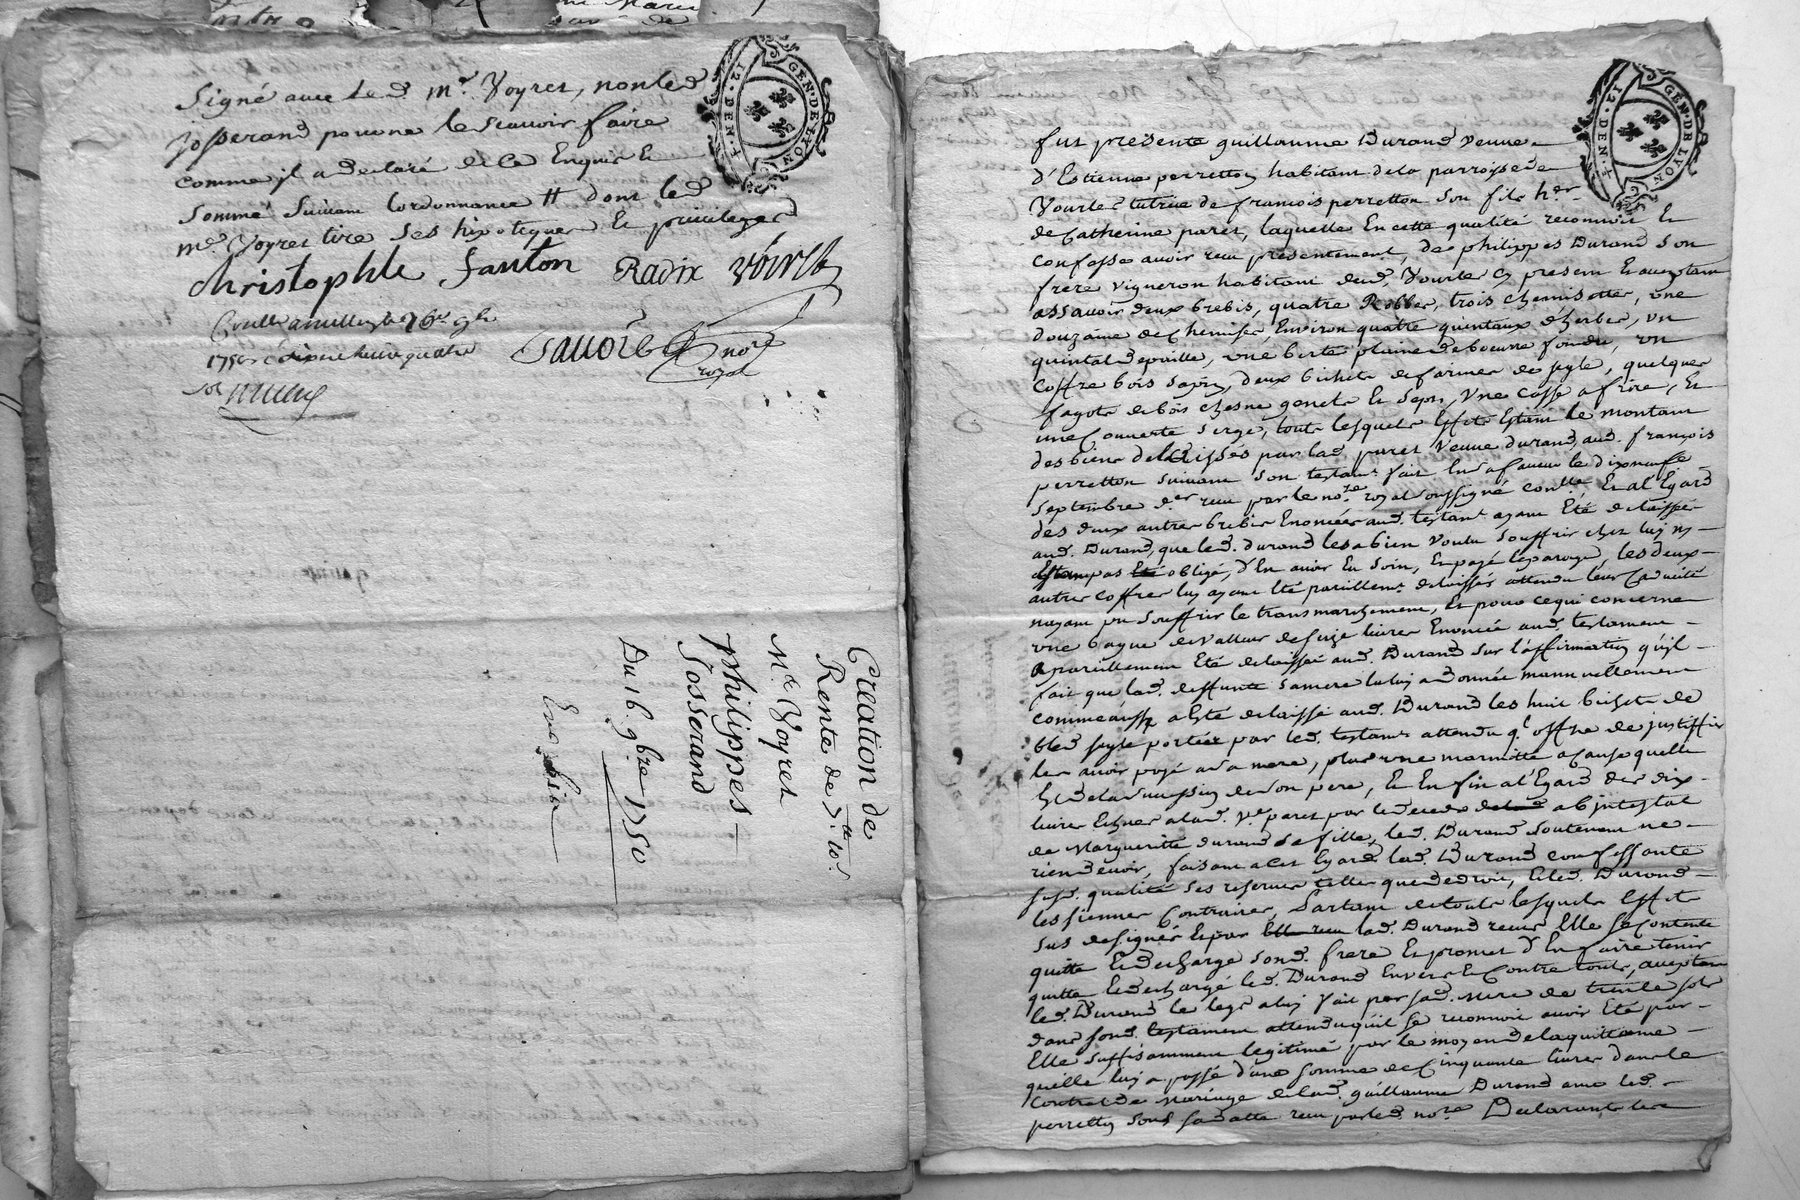 GEN·DE·LYON
12·DEN·4
Signé avec led. Mr. Voyret, non led
Josserand pour ne le scavoir faire
comme jl a declaré de ce Enquis Et
sommé suivant lordonnance # dont led
me. Voyret tire ses hipoteques Et privileges
christophle fanton Radix voiret
Savoie nore
royal
Creation de
Rente de 7tt 10s.
Mr. Voyret
Philippes
Josserand
Du 16 9bre 1750
GEN·DE·LYON
12·DEN·4
fut presente guillaume Durand veuve
d'Estienne perretton habitant de la parroisse de
Vourles tutrice de francois perretton son fils her.
de Catherine paret, laquelle En cette qualité reconnoit Et
confesse avoir reçu presentement, de philippes Durand son
frere vigneron habitant dud. Vourles cy present Et acceptant
assavoir deux brebis, quatre Robbes, trois chemisettes, une
douzaine de Chemises, Environ quatre quintaux d'herbes, un
quintal de paille, une berte plaine de beurre fondu, un
Coffre bois sapin, deux bichets de farines de seyle, quelques
fagots de bois chesne genets Et sapin, une casse a frire, Et
une Couverte serge, touts lesquels Effets Estant le montant
des biens delaissés par lad. paret veuve durand, aud. françois
perretton suivant son testamt. fait En sa faveur le dixneufe
septembre der. reçu par le nore. royal soussigné conllé, Et al'Egard
des deux autres brebis Enoncées aud. testamt. ayant Eté delaissés
aud. Durand, que led. durand les a bien voulu souffrir chez luy ny
Estant pas obligé, d'En avoir Eu soin, Et payé les parages, les deux
autres Coffres luy ayant Eté pareillemt. delaissés attendu leur Caducité
nayant pu souffrir le transmarchement, Et pour ce qui concerne
une bague de valleur de size livres Enoncée aud. testament
a pareillement Eté delaissée aud. Durand sur l'affirmation qu'jl
fait que lad. deffunte sa mere la luy a donnée manuellement
comme aussy a Esté delaissé aud. Durand les huit bichets de
bled seyle portées par led. testamt. attendu ql. offre de justiffier
les avoir payé a sa mere, plus une marmitte a Cause quelle
Est de la succession de son pere, Et En fin al'Egard des dix
livres Echues a lad. ve. paret par le decedz abjntestat
de Margueritte durand sa fille, led. Durand soutenant ne
rien devoir, faisant a cet Egard lad. Durand confessante
susd. qualité ses reserves telles que de droit, Et led. Durand
les siennes Contraires, Partant de touts lesquels Effets
sus designés Et par lad. Durand reçus Elle se Contente
quitte Et decharge sond. frere Et promet d'En faire tenir
quitte Et dechargé led. Durand Envers Et Contre touts, acceptant
led. Durand le legs a luy fait par sad. mere de trente sols
dans sond. testament attendu qu'il se reconnoit avoir Eté par
Elle suffisamment legitimé par le moyen de la quittance
qu'elle luy a passé d'une somme de Cinquante livres dans le
Contrat de Mariage de lad. guillaume Durand avec led.
perretton sous sa datte reçu par led. nore. Declarants les